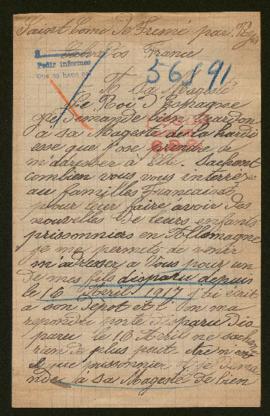 Saint Come de Fresné par
Pedir informes
56891.
A Sa Magesté
Le Roi d'Espagne
Je demande bien pardon
a sa Magesté de la hardi
esse que j'ose prendre de
m'adresser à Elle. Sachant
combien vous vous interressé
au familles Francaises
pour leur faire avoir des
nouvelles de leurs enfants
prisonniers en Allemagne
je me permets de venir
m'adresser à Vous pour un
de mes fils disparu depuis
le 16 Avril 1917 j'ai écrit
a son Dépot et l'on m'a
repondu porté disparu
le 16 Avril ne sachant
rien de plus peut
il que prisonnier je
a sa Magesté de bien